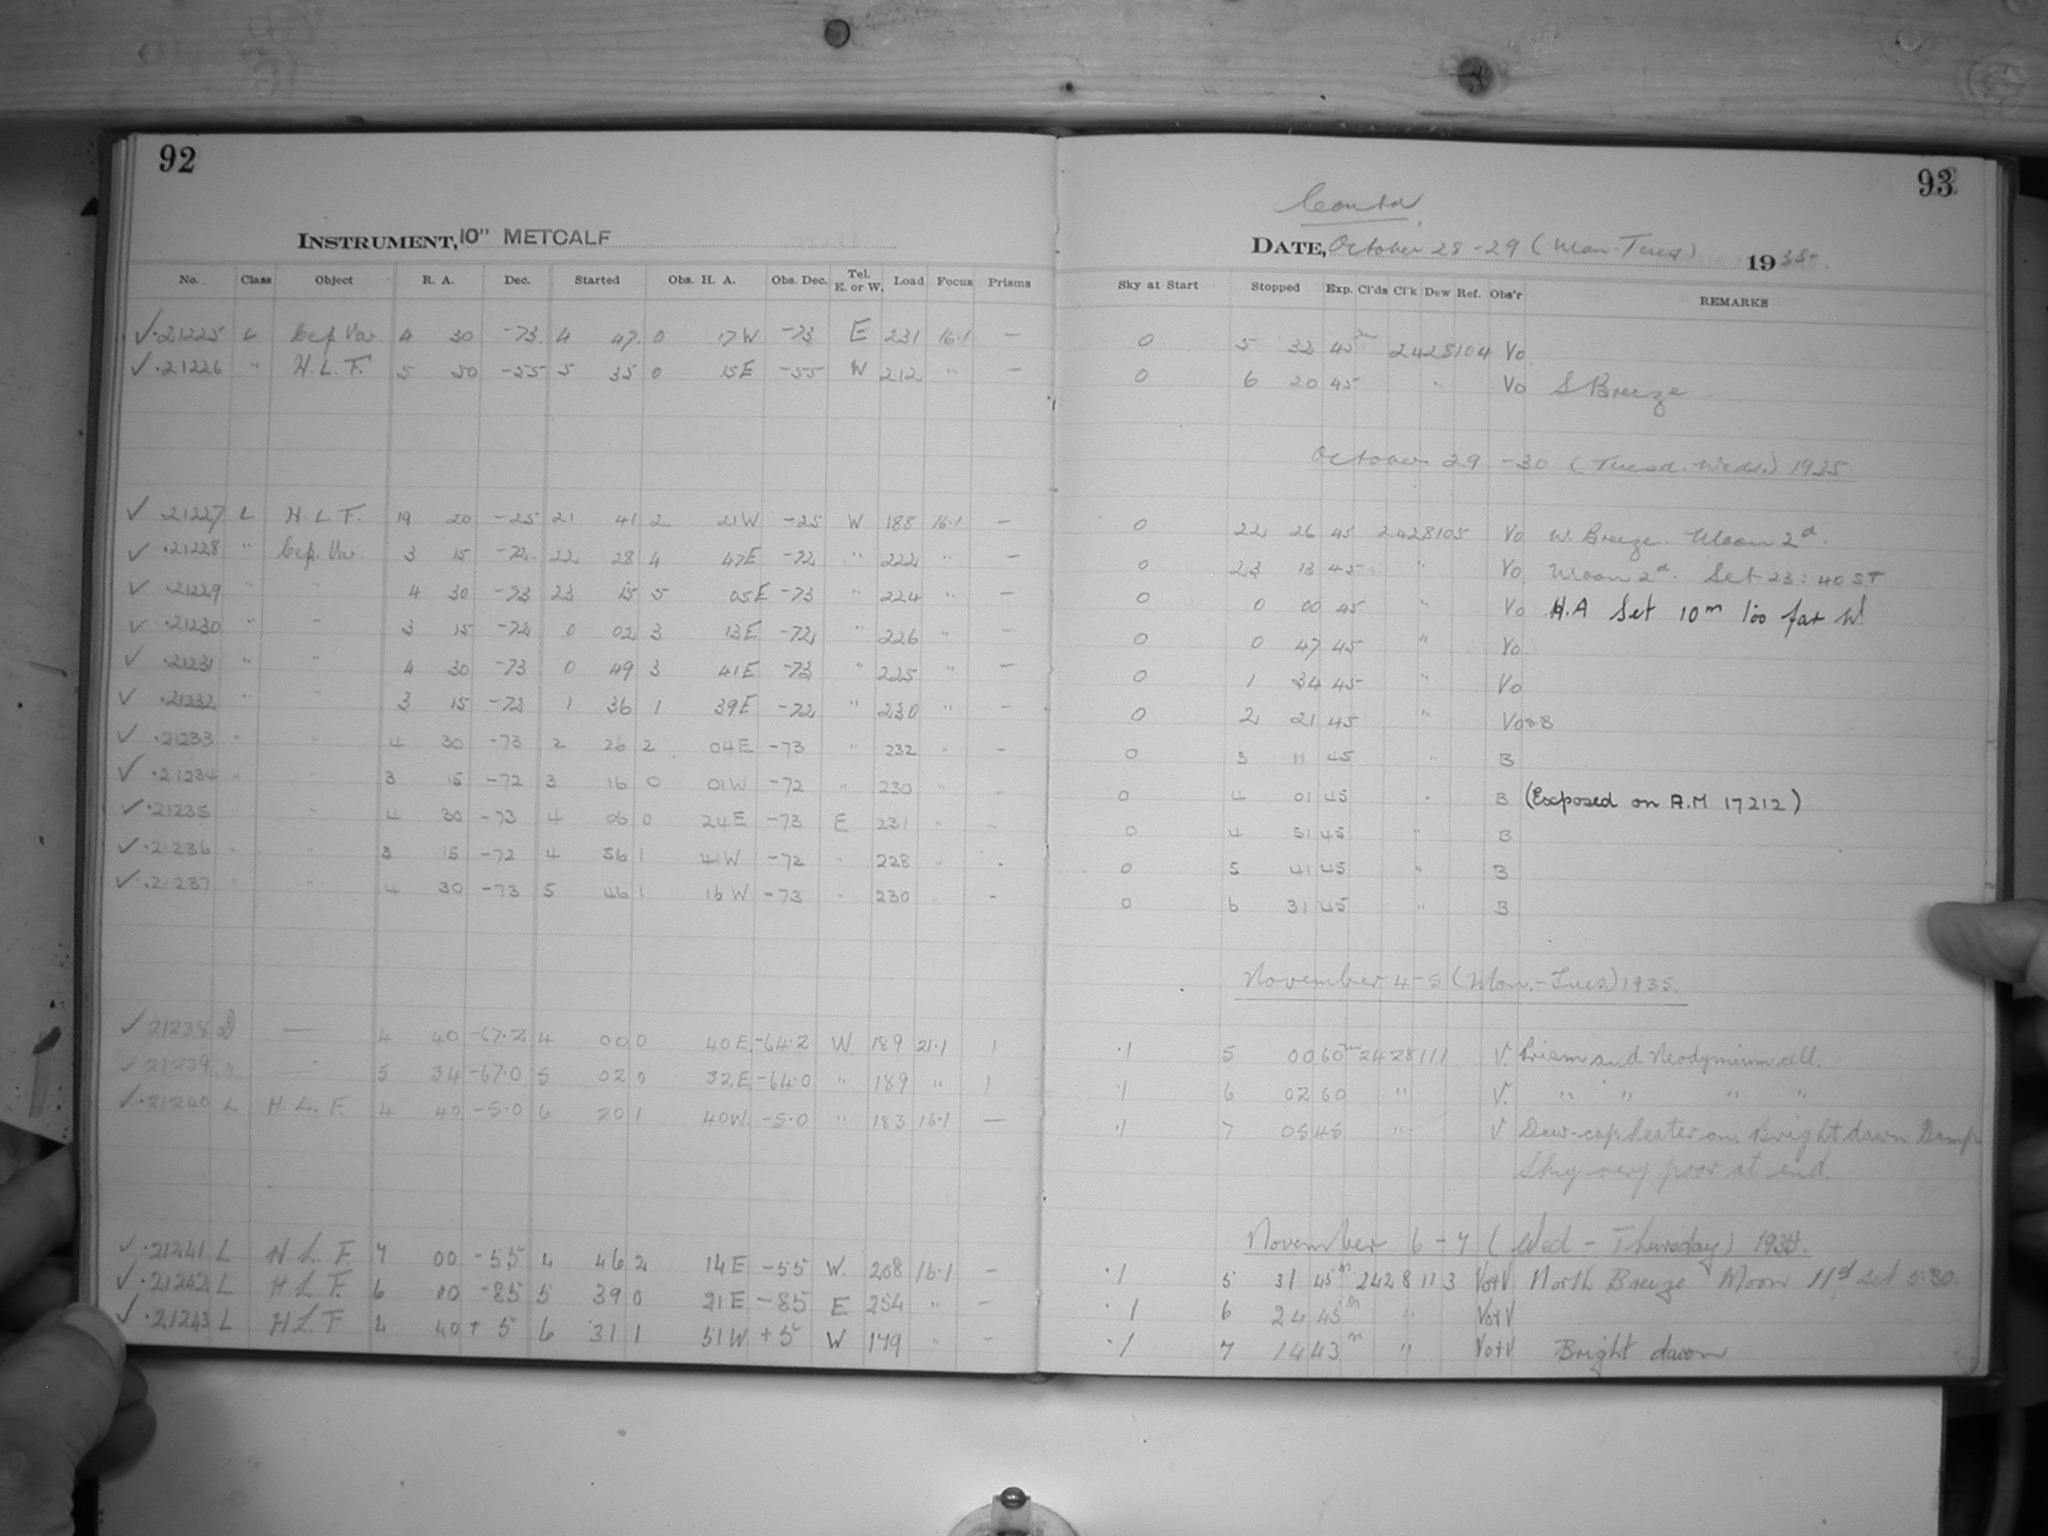 92
INSTRUMENT, 10" METCALF
No. Class Object R. A. Dec. Started Obs. H. A. Obs. Dec. Tel. E. or W. Load Focus Prisms
✓ .21225 L Cep Var 4 30 -73 4 47 0 17W -73 E 231 16.1 —
✓ .21226 " H.L.F. 5 50 -55 5 35 0 15E -55 W 212 " —
✓ .21227 L H.L.F. 19 20 -25 21 41 2 21W -25 W 188 16.1 —
✓ .21228 " Cep. Var. 3 15 -72 22 28 4 47E -72 " 222 " —
✓ .21229 " " 4 30 -73 23 15 5 05E -73 " 224 " —
✓ .21230 " " 3 15 -72 0 02 3 13E -72 " 226 " —
✓ .21231 " " 4 30 -73 0 49 3 41E -73 " 225 " —
✓ .21232 " " 3 15 -72 1 36 1 39E -72 " 230 " —
✓ .21233 " " 4 30 -73 2 26 2 04E -73 " 232 " —
✓ .21234 " " 3 15 -72 3 16 0 01W -72 " 230 " —
✓ .21235 " " 4 30 -73 4 06 0 24E -73 E 231 " —
✓ .21236 " " 3 15 -72 4 56 1 41W -72 " 228 " -
✓ .21237 " " 4 30 -73 5 46 1 16W -73 " 230 " —
✓ 21238 D — 4 40 -67.2 4 00 0 40E -64.2 W. 189 21.1 1
✓ 21239 " — 5 34 -67.0 5 02 0 32E -64.0 " 189 " 1
✓ .21240 L H.L.F. 4 40 -5.0 6 20 1 40W. -5.0 " 183 16.1 —
✓ .21241 L H L. F. 7 00 -55 4 46 2 14E -55 W. 208 16.1 —
✓ .21242 L H L F. 6 00 -85 5 39 0 21E -85 E 254 " —
✓ .21243 L H L. F 4 40 + 5 6 31 1 51W +5 W 179 " —
93
Contd
DATE, October 28-29 (Mon-Tues) 1935.
Sky at Start Stopped Exp. Cl'ds Cl'k Dew Ref. Obs'r REMARKS
0 5 32 45m 2428104 Vo
0 6 20 45 " Vo S Breeze.
October 29 -30 (Tuesd. Weds.) 1935.
0 22 26 45 2428105 Vo W. Breeze. Moon 2d.
0 23 13 45 " Vo Moon 2d. Set 23:40 ST
0 0 00 45 " Vo H.A Set 10m too far W
0 0 47 45 " Vo.
0 1 34 45 " Vo
0 2 21 45 " Vo&B
0 3 11 45 " B
0 4 01 45 " B (Exposed on A.M 17212)
0 4 51 45 " B
0 5 41 45 " B
0 6 31 45 " B
November 4-5 (Mon.-Tues) 1935.
.1 5 00 60m 2428111 V. Prism and Neodymium cell.
.1 6 02 60 " V. " " " "
.1 7 05 45 " V Dew-cap heater on. Bright dawn Damp
Sky very poor at end.
November 6-7 (Wed - Thursday) 1935.
.1 5 31 45m 2428113 Vo+V North Breeze Moon 11d, set 5:30.
.1 6 24 45m " Vo+V
.1 7 14 43m " Vo+V Bright dawn